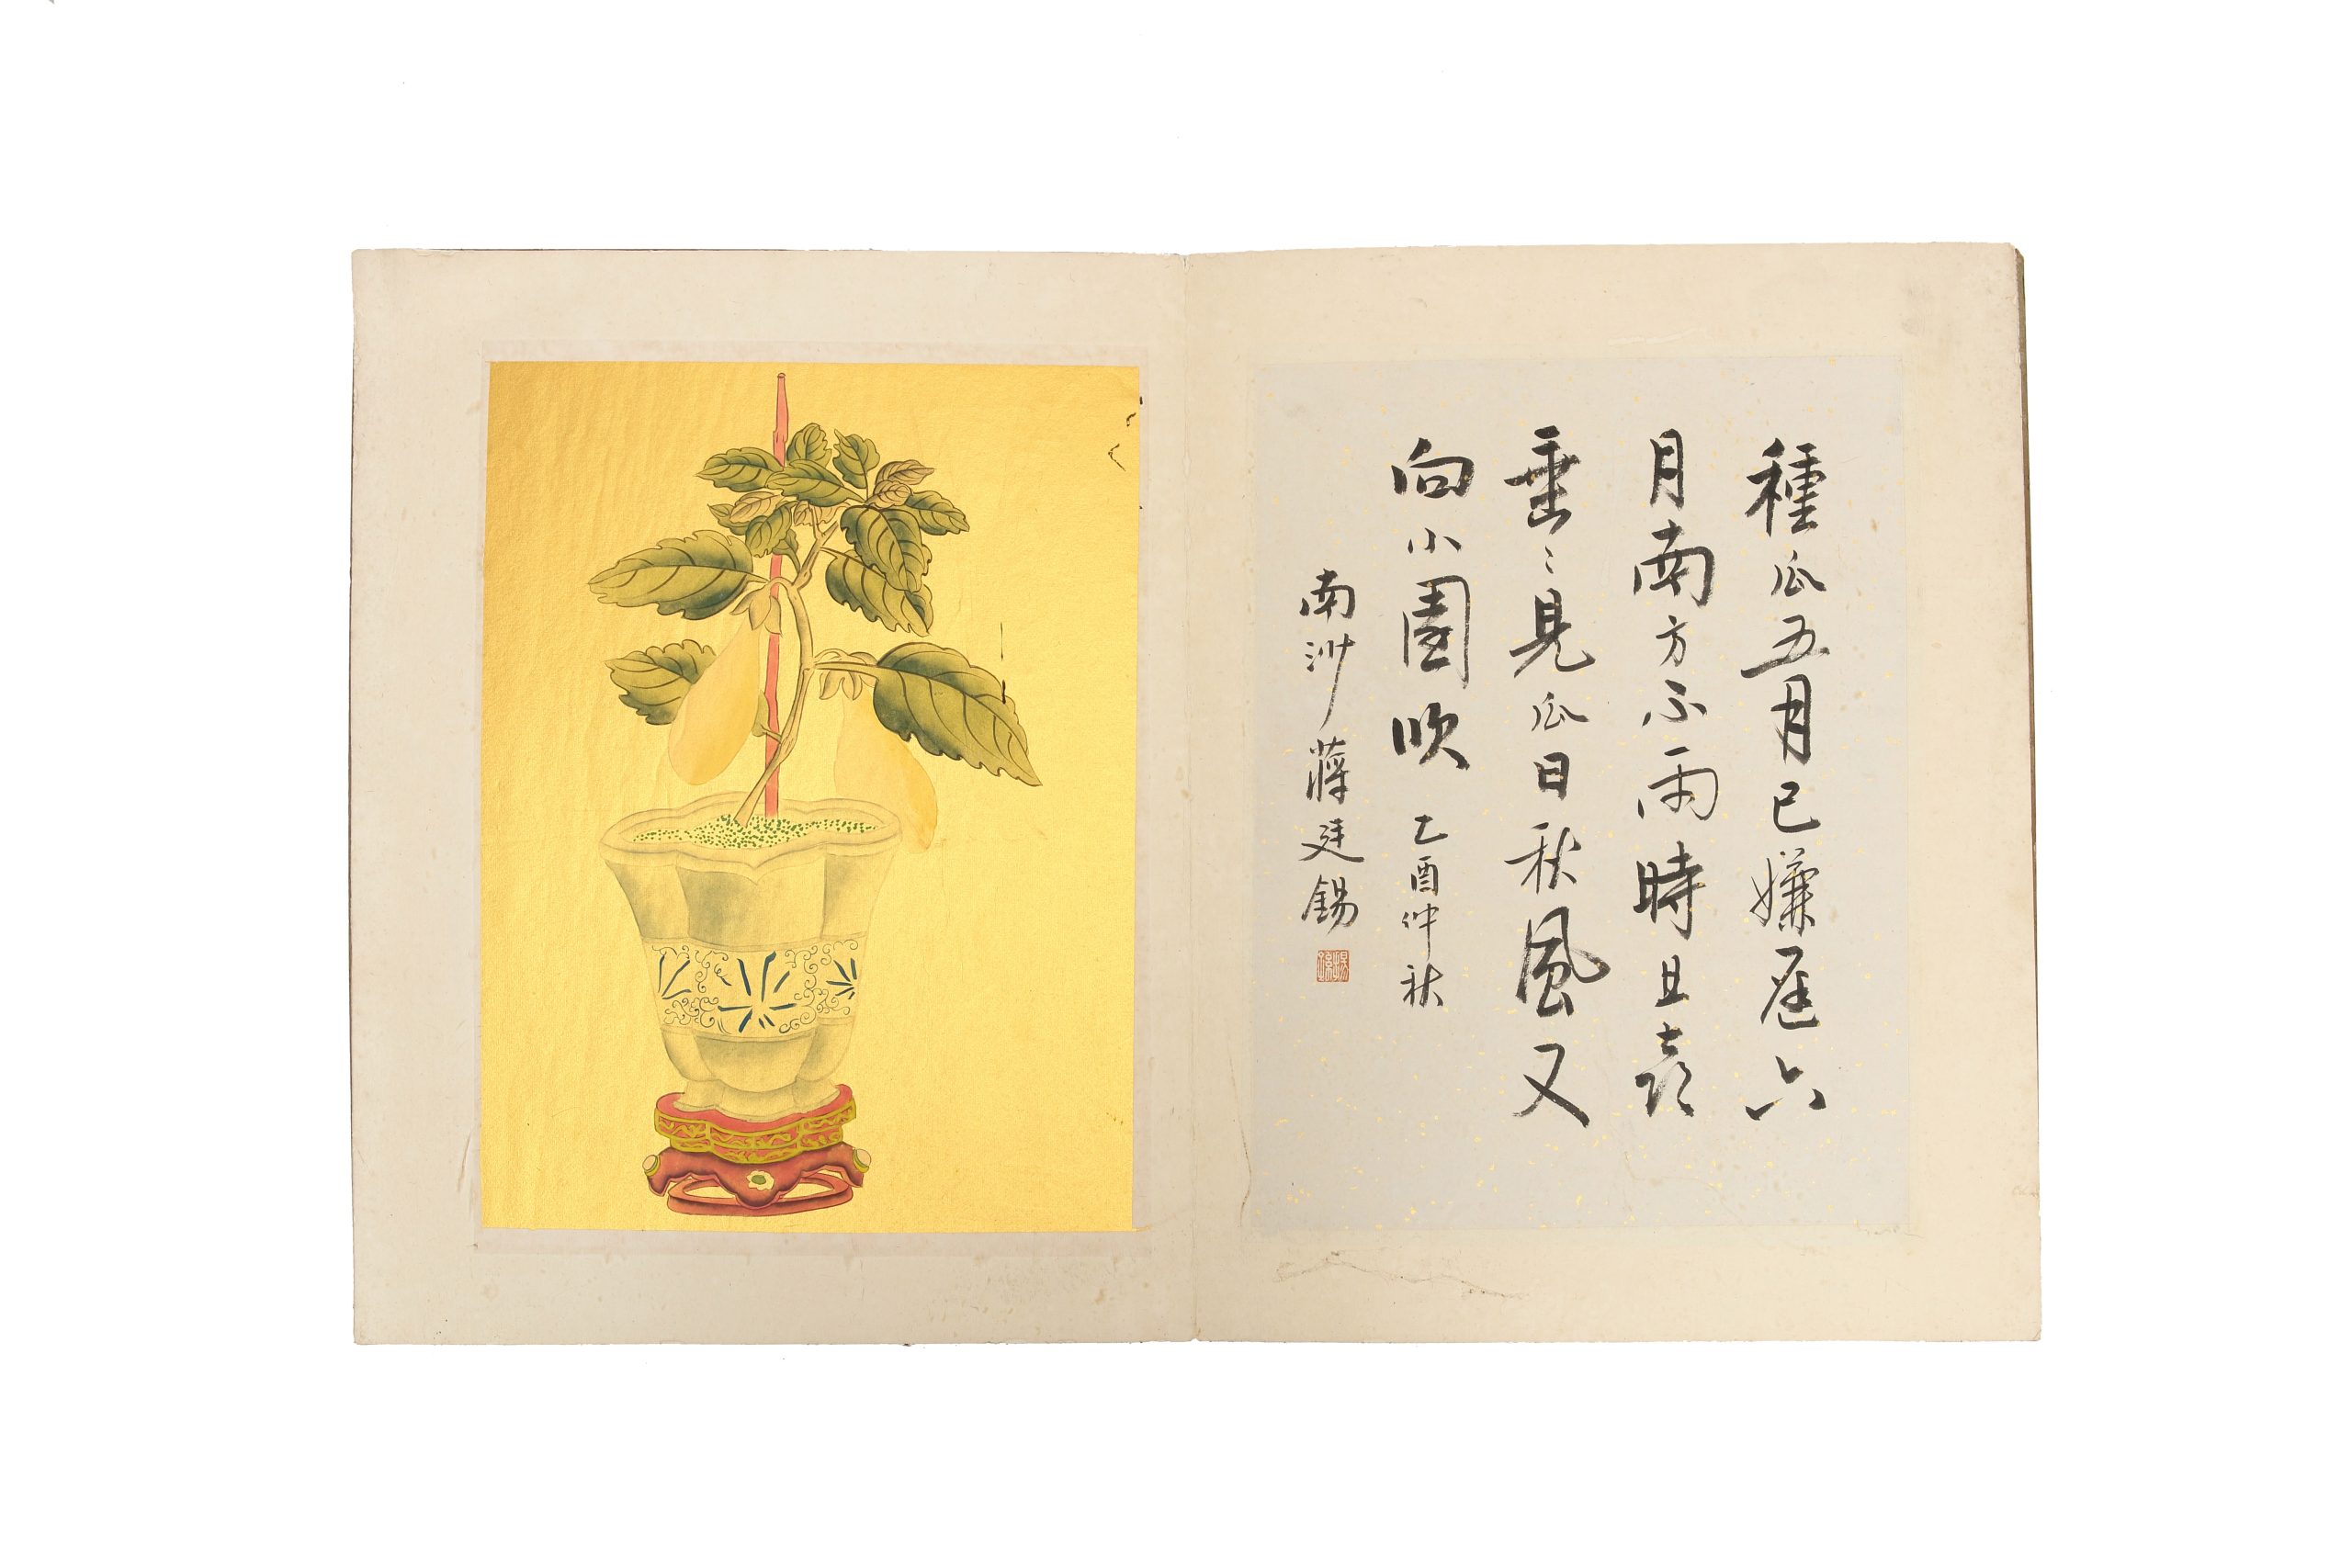 種瓜五月已嫌遲六
月南方不雨時且喜
垂〻見瓜日秋風又
向小園吹 乙酉仲秋
南沙蔣廷錫